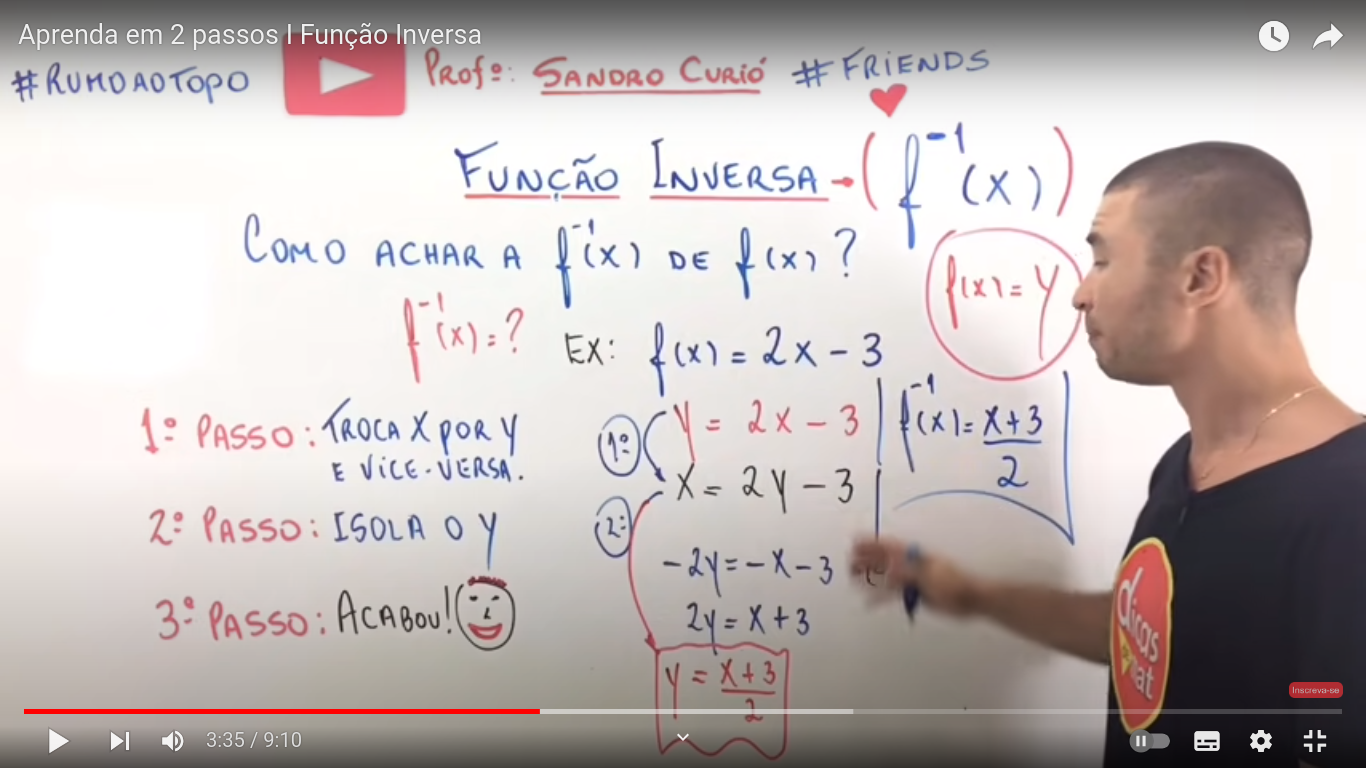 Aprenda em 2 passos I Função Inversa
#RUMOAOTOPO PROFº: SANDRO CURIÓ #FRIENDS
FUNÇÃO INVERSA → (f⁻¹(x))
COMO ACHAR A f⁻¹(x) DE f(x)?
f(x) = y
f⁻¹(x) = ?
EX: f(x) = 2x - 3
1º PASSO: TROCA X POR Y
E VICE-VERSA.
2º PASSO: ISOLA O Y
3º PASSO: ACABOU!
1º
y = 2x - 3
x = 2y - 3
2º
-2y = -x - 3
2y = x + 3
y = x + 3
2
f⁻¹(x) = x + 3
2
dicas
mat
Inscreva-se
3:35 / 9:10